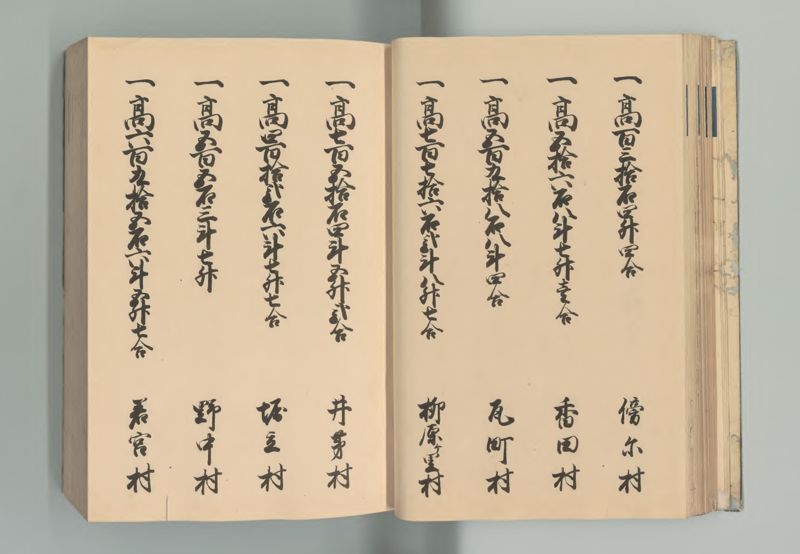 一高百三拾石四升四合 傍尓村
一高五拾六石八斗七升壱合 香田村
一高五百九拾八石八斗四合 瓦町村
一高七百七拾六石弐斗八升七合 柳原ヶ里村
一高七百五拾石四斗五升弐合 井芽村
一高四百拾弐石六斗七升七合 堀立村
一高五百五石三斗七升 野中村
一高六百九拾五石六斗五升七合 若宮村